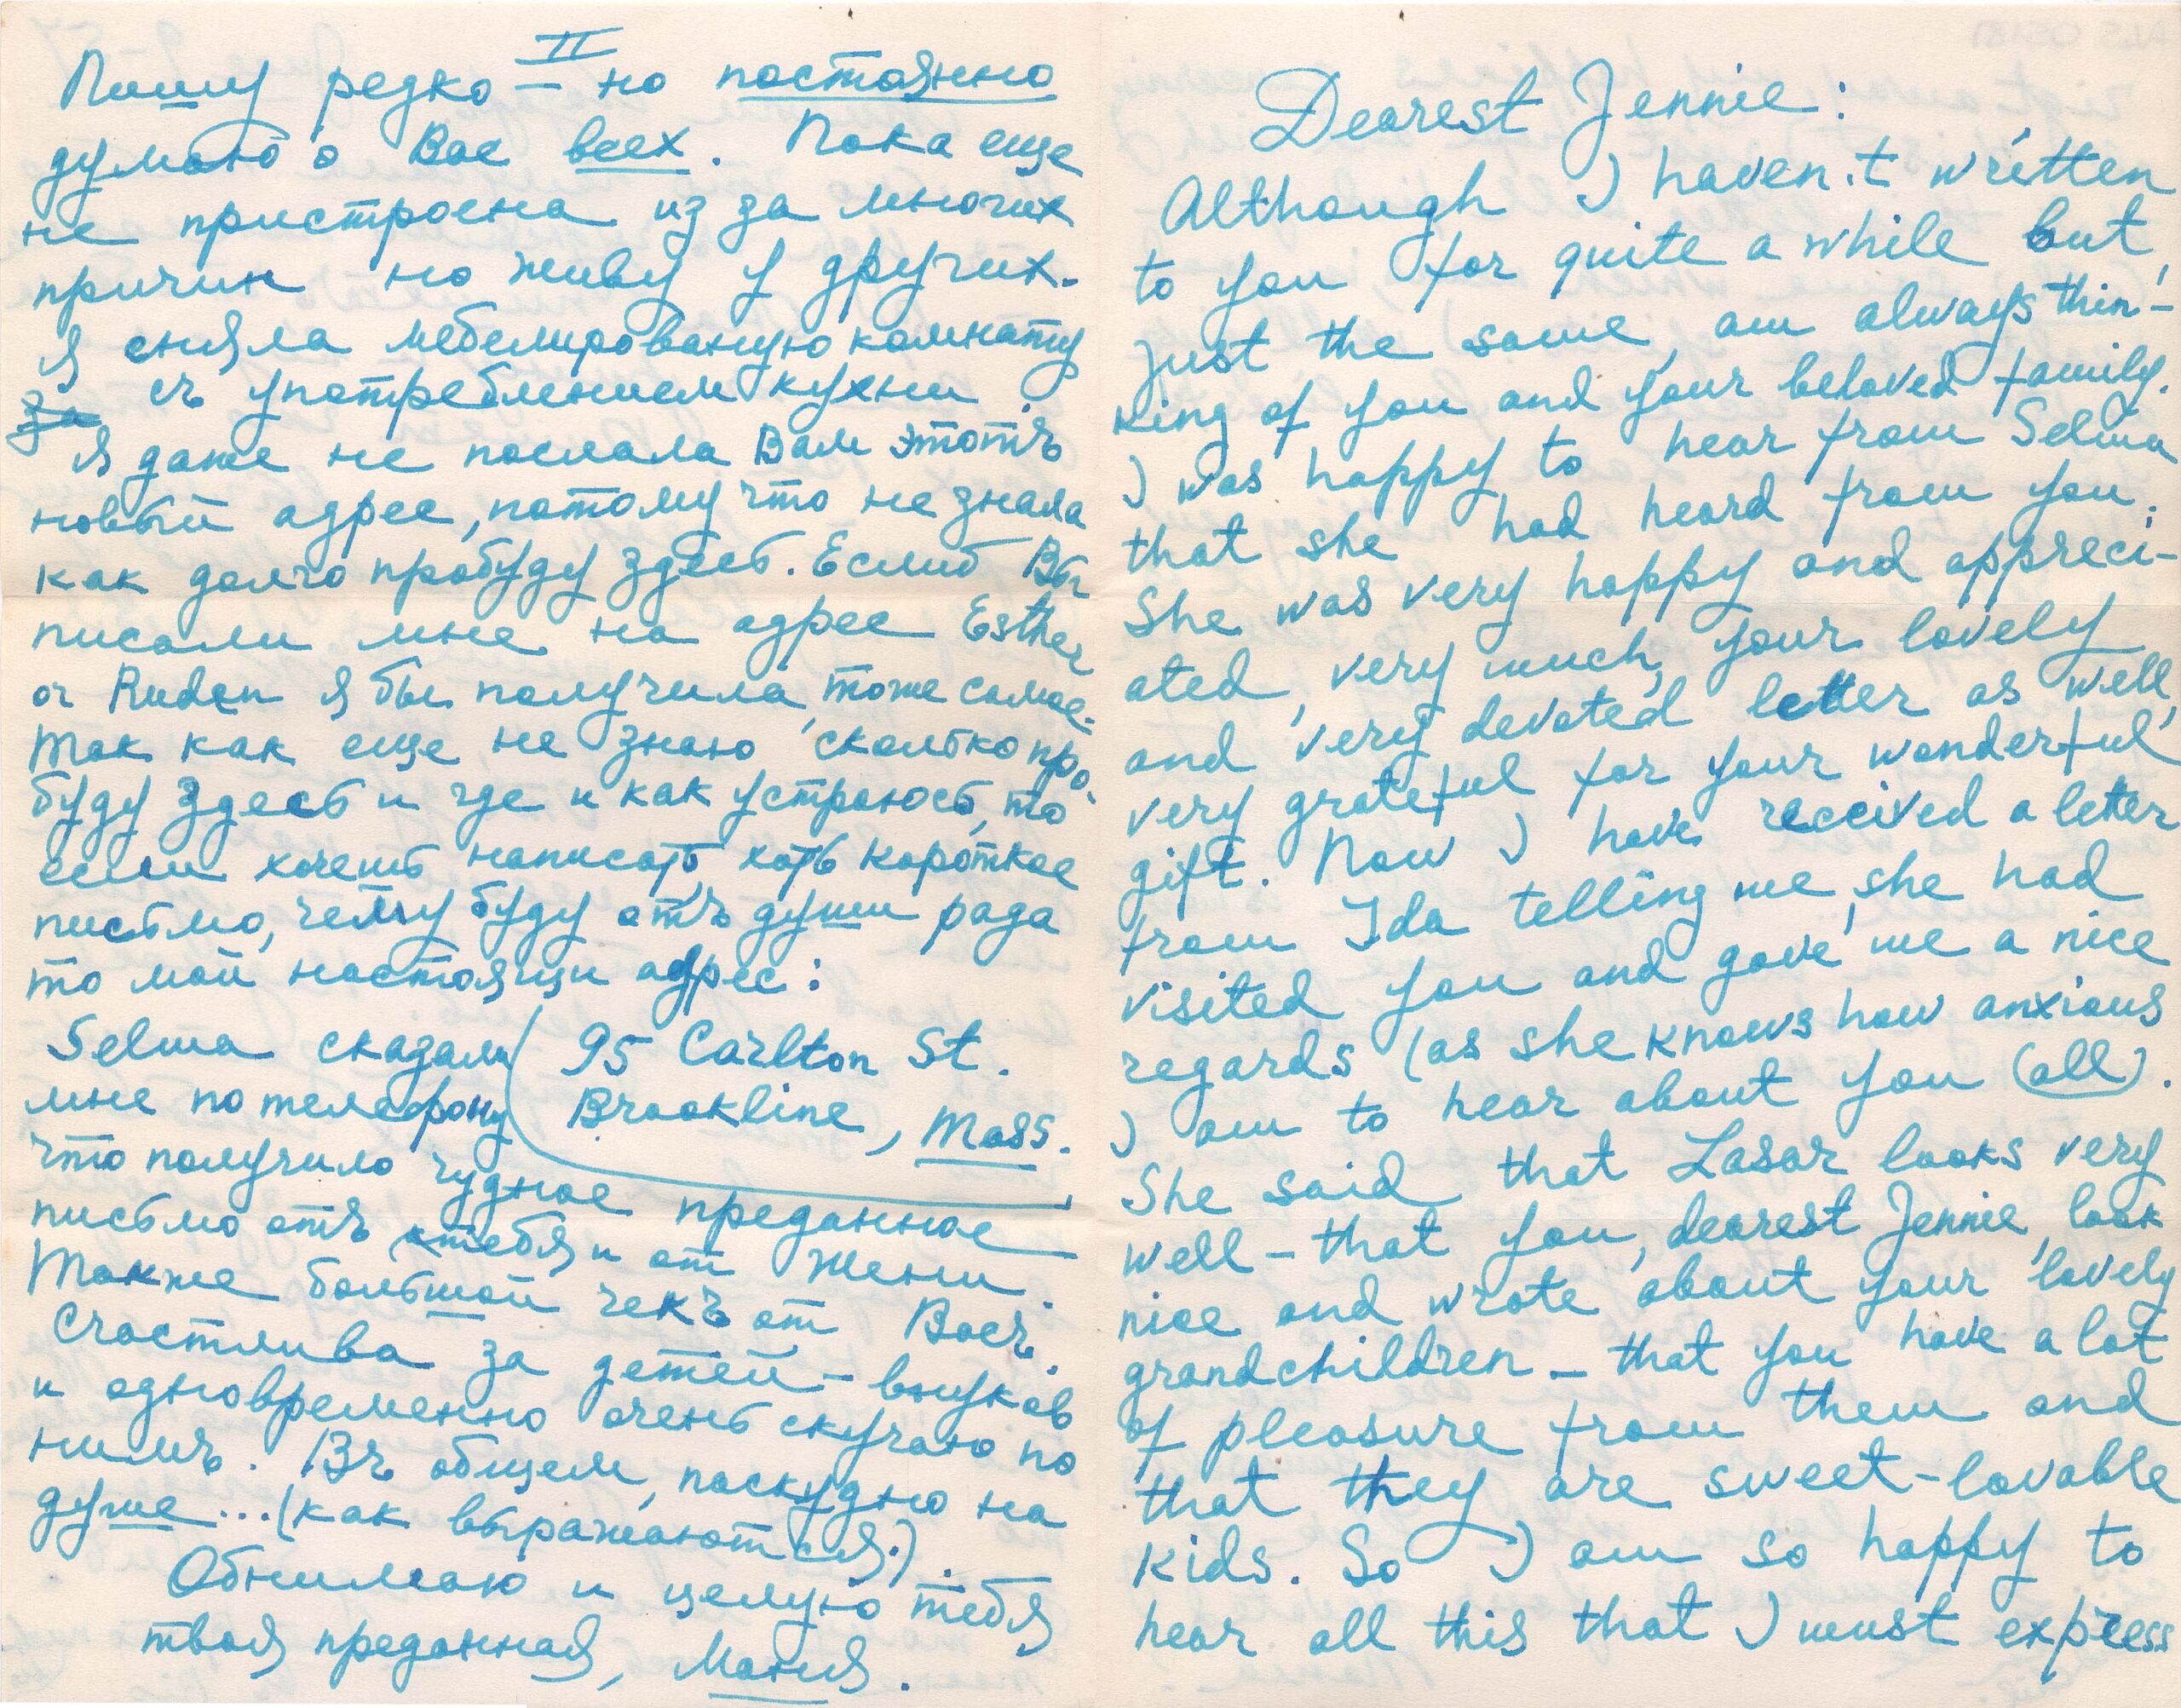 II
Пишу редко – но постоянно
думаю о Вас всех. Пока еще
не пристроена из за многих
причин но живу у других.
Я сняла мебелированую комнату
за съ употреблением кухни.
Я даже не послала Вам этотъ
новый адрес, потому что не знала
как долго пробуду здесь. Еслиб Вы
писали мне на адрес Esther
or Ruden я бы получила, тоже самое.
Так как еще не знаю, сколько про-
буду здесь и где и как устроюсь, то
если хочешь написать хоть короткое
письмо, чему буду отъ души рада
то мой настоящи адрес:
Selma сказала
мне по телефону
95 Carlton St.
Brookline, Mass.
что получило чудное преданное
письмо отъ тебя и от Жени.
Также большой чекъ от Васъ.
Счастлива за детей – внуков
и одновременно очень скучаю по
нимъ. Въ общем, паскудно на
душе...(как выражаются.).
Обнимаю и целую тебя
твоя преданная, Маня.
Dearest Jennie:
Although I haven't written
to you for quite a while but,
just the same, am always thin-
king of you and your beloved family.
I was happy to hear from Selma
that she had heard from you;
She was very happy and appreci-
ated, very much, your lovely
and very devoted letter as well,
very grateful for your wonderful
gift. Now I have received a letter
from Ida telling me, she had
visited you and gave me a nice
regards (as she knows how anxious
I am to hear about you (all).
She said that Lasar looks very
well – that you, dearest Jennie, look
nice and wrote about your lovely
grandchildren – that you have a lot
of pleasure from them and
that they are sweet-lovable
kids. So I am so happy to
hear all this that I must express